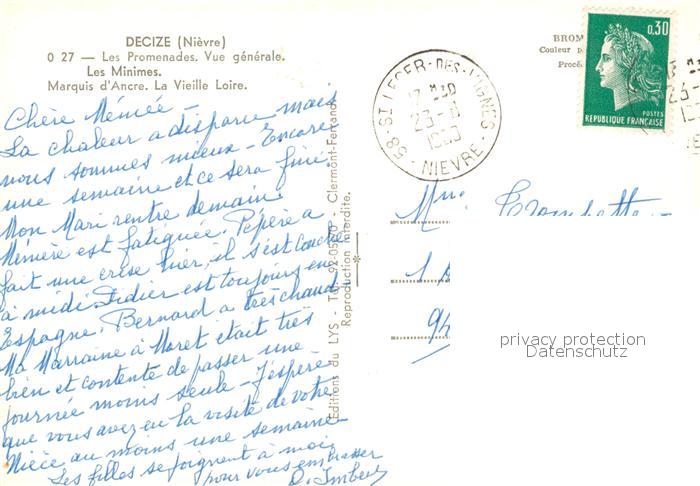 DECIZE (Nièvre)
0 27 — Les Promenades. Vue générale.
Les Minimes.
Marquis d'Ancre. La Vieille Loire.
Chère Mémée -
La chaleur a disparu mais
nous sommes mieux - Encore
une semaine et ce sera fini.
Mon Mari rentre demain.
Mémère est fatiguée. Pépère a
fait une crise hier, il s'est couché
à midi Didier est toujours en
Espagne. Bernard a très chaud
Ma Marraine à Moret était très
bien et contente de passer une
journée moins seule - J'espère
que vous avez eu la visite de votre
Nièce au moins une semaine
Les filles se joignent à moi
pour vous embrasser
Editions du LYS - Clermont-Ferrand
Reproduction interdite.
BROM
Couleur
Procé
0,30
POSTES
REPUBLIQUE FRANÇAISE
58 ST LEGER-DES-VIGNES
NIEVRE
Mme
privacy protection
Datenschutz